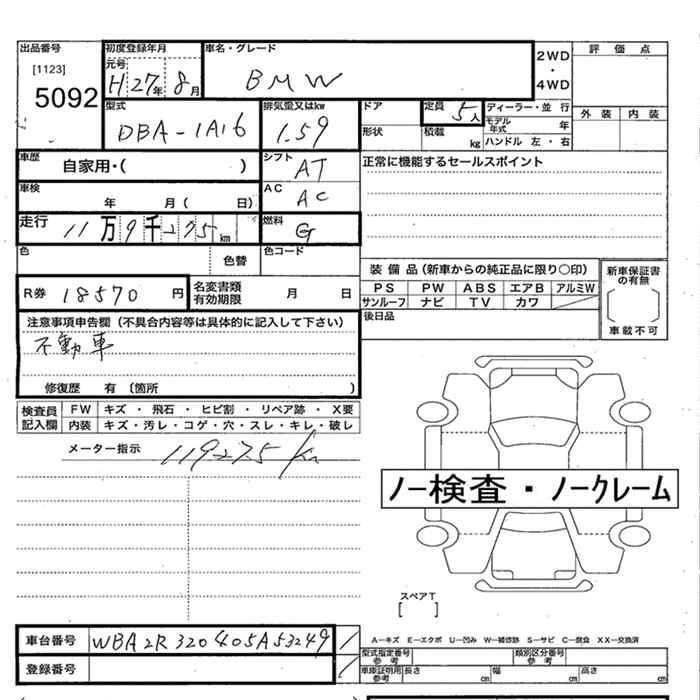 出品番号 [1123] 5092
初度登録年月 元号 H27年8月
車名・グレード BMW
2WD・4WD
評価点
外装 内装
型式 DBA-1A16
排気量又はkw 1.59
ドア
形状
定員 5人
積載 kg
ディーラー・並行
モデル年式 年
ハンドル 左・右
車歴 自家用・( )
シフト AT
正常に機能するセールスポイント
車検 年 月( 日)
AC AC
走行 11万9千275km
燃料 G
色 色替
色コード
装備品(新車からの純正品に限り○印)
PS PW ABS エアB アルミW
サンルーフ ナビ TV カワ
新車保証書の有無
[ ]
車載不可
R券 18570円
名変書類有効期限 月 日
後日品
注意事項申告欄(不具合内容等は具体的に記入して下さい)
不動車
修復歴 有 (箇所 )
検査員記入欄
FW キズ・飛石・ヒビ割・リペア跡・X要
内装 キズ・汚レ・コゲ・穴・スレ・キレ・破レ
メーター指示 119275km
ノー検査・ノークレーム
スペアT
[ ]
車台番号 WBA2R320405A53249
登録番号
A―キズ E―エクボ U―凹み W―補修跡 S―サビ C―腐食 XX―交換済
型式指定番号 参考
類別区分番号 参考
車庫証明用 参考 長さ cm 幅 cm 高さ cm